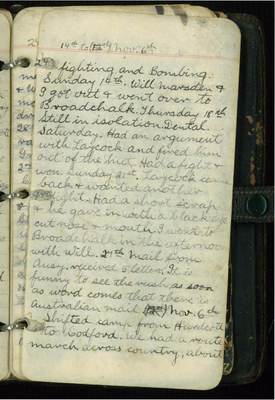 14th to Nov. 6th
fighting and Bombing.
Sunday 14th. Will Marsden &
I got out & went over to
Broadchalk. Thursday 18th
still in isolation. Dental
Saturday. Had an argument
with Laycock and fired him
out of the hut. Had a fight &
won. Sunday 21st. Laycock came
back & wanted another
fight. Had a short scrap
& he gave in with a black eye
cut nose & mouth. I went to
Broadchalk in the afternoon
with Will. 27th Mail from
Ausy. received 5 letters. It is
funny to see the rush as soon
as word comes that there is
Australian mail Nov. 6th
Shifted camp from Hurdcott
to Codford. We had a route
march across country, about